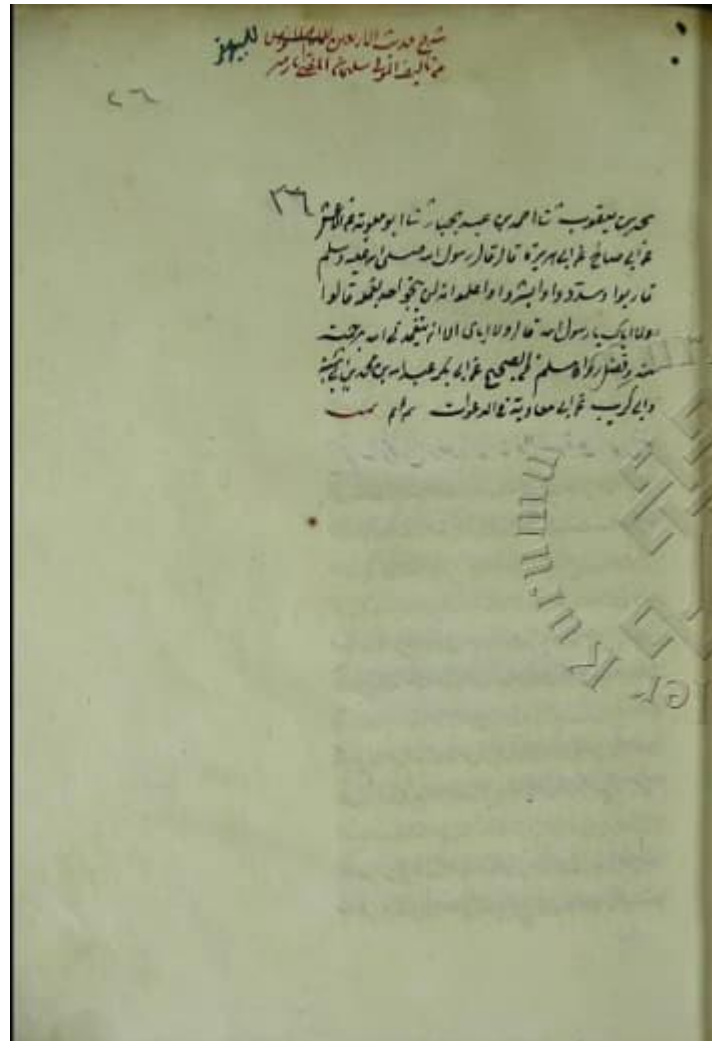 شرح حديث الاربعين للبيهقي
من تاليف المولى
٢٦
٣٦
محمد بن يعقوب ثنا احمد بن عبد الجبار ثنا ابو معوية عن الاعمش
عن ابي صالح عن ابي هريرة قال قال رسول الله صلى الله عليه وسلم
قاربوا وسددوا وابشروا واعلموا انه لن ينجو احد بعمله قالوا
ولا اياك يا رسول الله قال ولا اياى الا ان يتغمدني الله برحمة
منه وفضل رواه مسلم في الصحيح عن ابي بكر عبد الله بن محمد بن ابي شيبة
وابي كريب عن ابي معاوية في الدعوات تمت